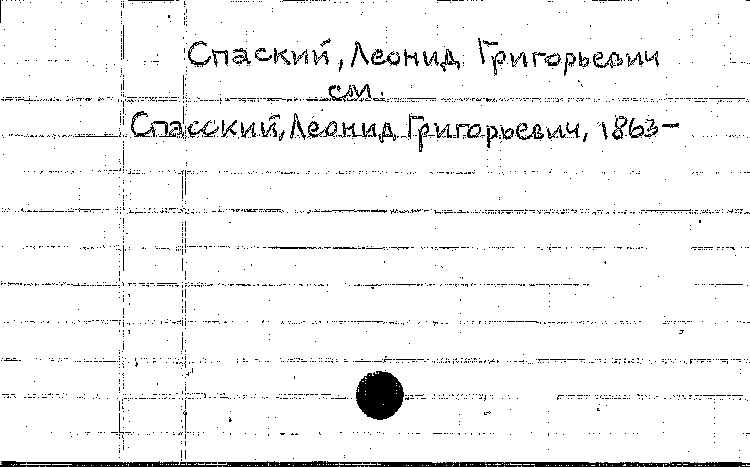 Спаский, Леонид Григорьевич
см.
Спасский, Леонид Григорьевич, 1863-